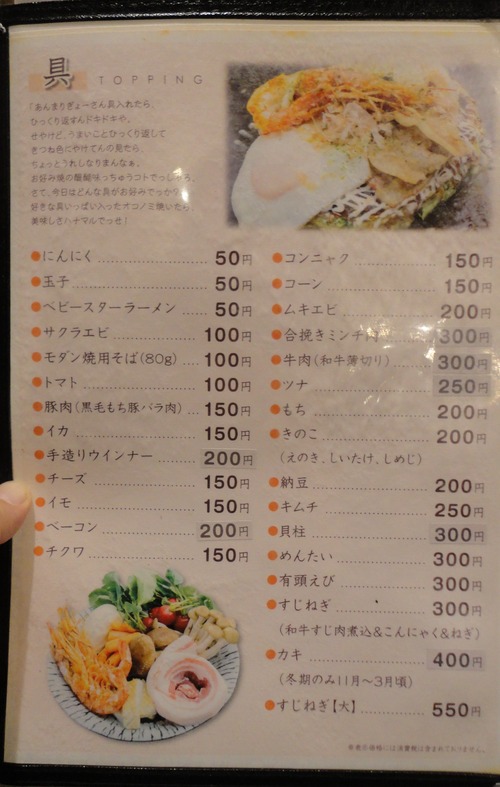 具 TOPPING
「あんまりぎょーさん具入れたら、
ひっくり返すんドキドキや。
せやけど、うまいことひっくり返して
きつね色にやけてんの見たら、
ちょっとうれしなりまんなぁ。
お好み焼の醍醐味っちゅうコトでっしゃろ。
さて、今日はどんな具がお好みでっか?
好きな具いっぱい入ったオコノミ焼いたら、
美味しさハナマルでっせ!
にんにく 50円
玉子 50円
ベビースターラーメン 50円
サクラエビ 100円
モダン焼用そば(80g) 100円
トマト 100円
豚肉(黒毛もち豚バラ肉) 150円
イカ 150円
手造りウインナー 200円
チーズ 150円
イモ 150円
ベーコン 200円
チクワ 150円
コンニャク 150円
コーン 150円
ムキエビ 200円
合挽きミンチ肉 300円
牛肉(和牛薄切り) 300円
ツナ 250円
もち 200円
きのこ 200円
(えのき、しいたけ、しめじ)
納豆 200円
キムチ 250円
貝柱 300円
めんたい 300円
有頭えび 300円
すじねぎ 300円
(和牛すじ肉煮込&こんにゃく&ねぎ)
カキ 400円
(冬期のみ11月〜3月頃)
すじねぎ【大】 550円
表示の価格には消費税は含まれておりません。